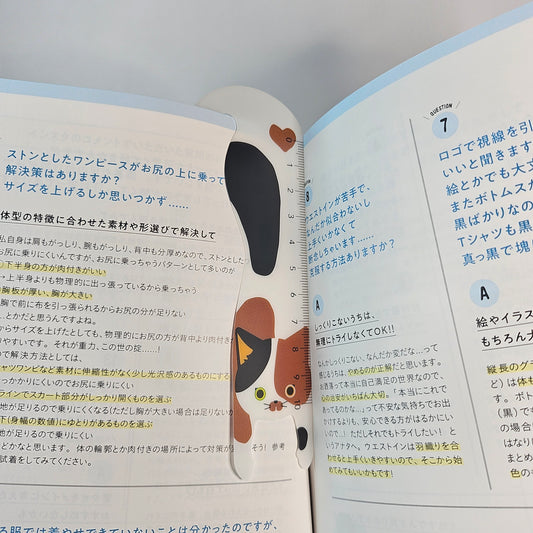 ストンとしたワンピースがお尻の上に乗って
解決策はありますか?
サイズを上げるしか思いつかず……
体型の特徴に合わせた素材や形選びで解決して
私自身は肩もがっしり、腕もがっしり、背中も分厚めなので、ストンとした
お尻に乗りにくいんですが、お尻に乗っちゃうパターンとして多いのが
下半身の方が肉付きがいい
→上半身よりも物理的に出っ張っているから乗っちゃう
胸板が厚い、胸が大きい
胸で前に布を引っ張られるからお尻の分が足りない
かだと思うんですよね。
からサイズを上げたとしても、物理的にお尻の方が背中より肉付き
やすいです。それが重力、この世の掟……!
で解決方法としては、
シャツワンピなど素材に伸縮性がなく少し光沢感のあるものにする
っかかりにくいのでお尻に乗りにくい
ラインでスカート部分がしっかり開くものを選ぶ
地が足りるので乗りにくくなる(ただし胸が大きい場合は足りない
下(身幅の数値)にゆとりがあるものを選ぶ
地が足りるので乗りにくい
かなと思います。体の輪郭とか肉付きの場所によって対策が
そう! 参考
試着をしてみてください。
る服では着やせできていないことは分かったのですが、
0
1
2
3
4
5
6
7
8
9
10
QUESTION
ウエストインが苦手で、
なんだか似合わないし
上手くいかなくて
克服する方法ありますか?
A
しっくりこないうちは、
無理にトライしなくてOK!!
なんかしっくりこない、なんか変だな…って
感じるうちは、やめるのが正解だと思います。
お洒落って本当に自己満足の世界なので、
心の出安がいちばん大切。「本当にこれで
あってるのかな…」って不安な気持ちでお出
かけするよりも、安心できる方がはるかにい
いので…! ただしそれでもトライしたい! と
いうアナタへ。ウエストインは羽織りを合
わせると上手くいきやすいので、そこから始
めてみてもいいかもです!
QUESTION
7
ロゴで視線を引
いいと聞きます
絵とかでも大丈
またボトムスが
黒ばかりなの
「シャツも黒
真っ黒で塊に
A
絵やイラス
もちろん大
縦長のグラ